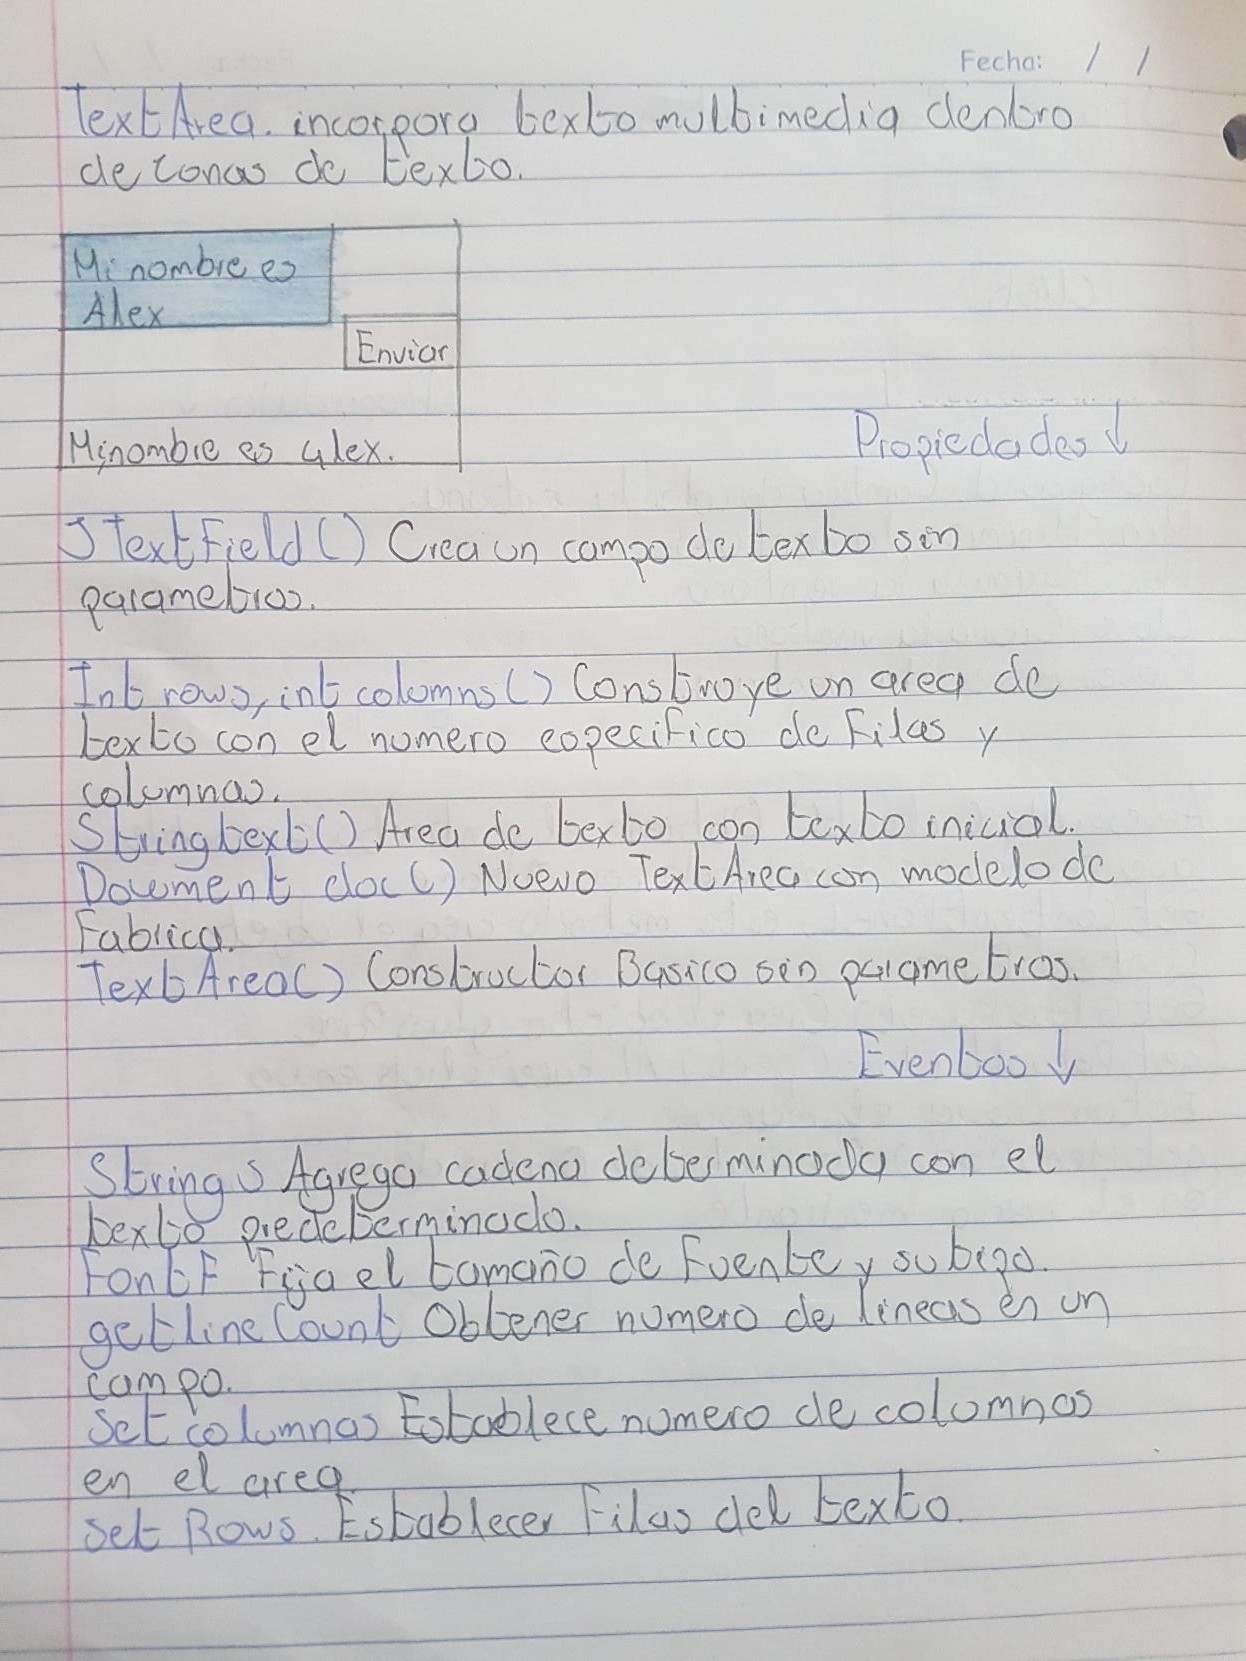 Fecha: / /
TextArea. incorpora texto multimedia dentro
de zonas de texto.
Mi nombre es
Alex
Enviar
Mi nombre es alex.
Propiedades ↓
JTextField() Crea un campo de texto sin
parametros.
Int rows, int columns() Construye un area de
texto con el numero especifico de Filas y
columnas.
String text() Area de texto con texto inicial.
Document doc() Nuevo TextArea con modelo de
Fabrica.
TextArea() Constructor Basico sin parametros.
Eventos ↓
String S Agrega cadena determinada con el
texto predeterminado.
Font F Fija el tamaño de Fuente y su tipo.
getlineCount Obtener numero de lineas en un
campo.
Set columnas Establece numero de columnas
en el area.
Set Rows. Establecer Filas del texto.